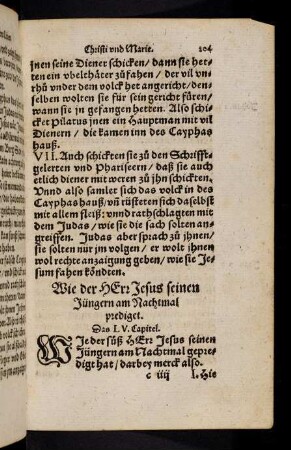 Christi vnd Marie. 204
jnen seine Diener schicken/ dann sie het-
ten ein vbelthäter zů fahen/ der vil vn-
rhů vnder dem volck het angericht/ den-
selben wolten sie für sein gericht füren/
wann sie jn gefangen hetten. Also schi-
cket Pilatus jnen ein Hauptman mit vil
Dienern/ die kamen inn des Cayphas
hauß.
VII. Auch schickten sie zů den Schrifft-
gelerten vnd Phariseern/ daß sie auch
etlich diener mit weren zů jhn schickten.
Vnnd also samlet sich das volck in des
Cayphas hauß/ vñ rüsteten sich daselbst
mit allem fleiß: vnnd rathschlagten mit
dem Judas/ wie sie die sach solten an-
greiffen. Judas aber sprach zů jhnen/
sie solten nur jm volgen/ er wolt jhnen
wol rechte anzaigung geben/ wie sie Je-
sum fahen köndten.
Wie der HErr Jesus seinen
Jüngern am Nachtmal
prediget.
Das LV. Capitel.
WIe der süß HErr Jesus seinen
Jüngern am Nachtmal gepre-
digt hat/ darbey merck also.
c iiij I. Hie